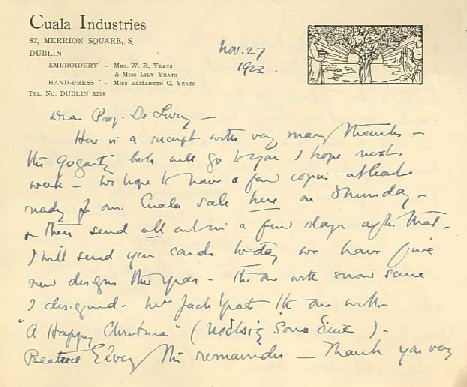 Cuala Industries
82, MERRION SQUARE, S.
DUBLIN
EMBROIDERY - MRS. W. B. YEATS
& MISS LILY YEATS
HAND-PRESS - MISS ELIZABETH C. YEATS
TEL. NO. DUBLIN
Nov. 27
1922
Dear Prof. De Lury —
Here is a receipt with very many thanks —
this Gogarty book will go to you I hope next
week — We hope to have a few copies at least
ready for our Cuala sale here on Thursday —
& then send all out in a few days after that —
I will send your cards today we have five
new designs this year — the one with snow scene
I designed — Mrs Jack Yeats the one with
"A Happy Christmas" ( ) —
Beatrice Elvery the remainder — Thank you very